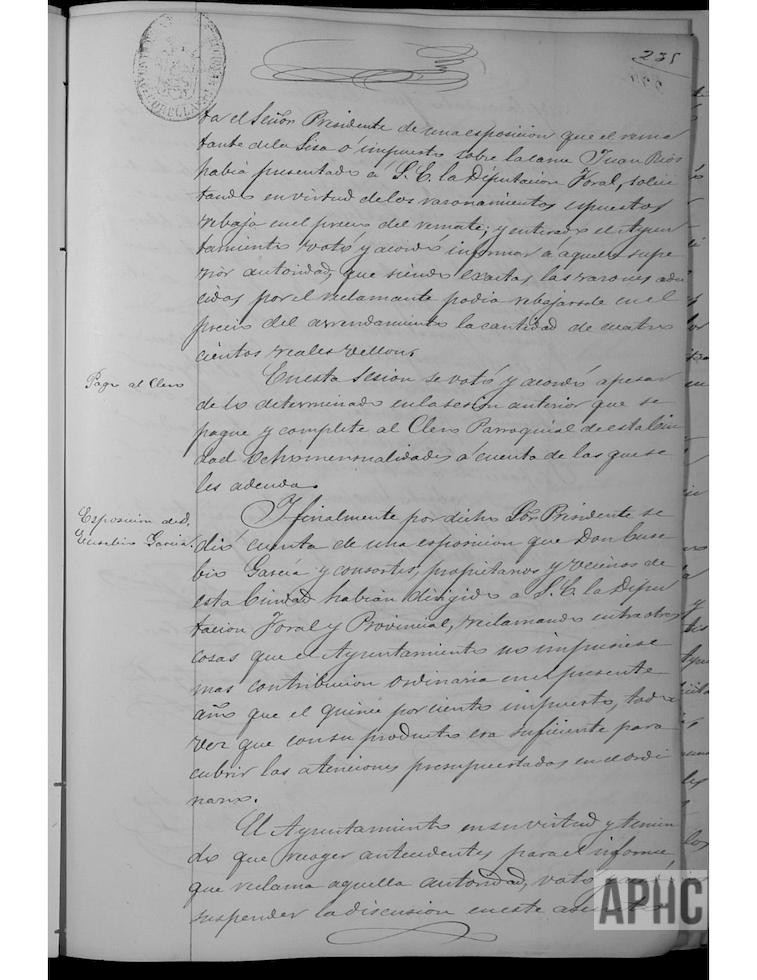 235
ta el Señor Presidente de una esposicion que el rema
tante de la Sisa o impuesto sobre la carne Juan Rios
habia presentado á S. E. la Diputacion Foral, solici
tando en virtud de los razonamientos espuestos
rebaja en el precio del remate; y enterado el Ayun
tamiento votó y acordó informar á aquella supe
rior autoridad, que siendo exactas las razones adu
cidas por el reclamante podia rebajarsele en el
precio del arrendamiento la cantidad de cuatro
cientos reales vellon.
Pago al Clero
En esta sesion se votó y acordó apesar
de lo determinado en la sesion anterior que se
pague y complete al Clero Parroquial de esta Ciu
dad ocho mensualidades á cuenta de las que se
les adeuda.
Esposicion de D.
Eusebio Garcia.
Y finalmente por dicho Sor. Presidente se
dió cuenta de una esposicion que Don Euse
bio García y consortes, propietarios y vecinos de
esta Ciudad habian dirigido a S. E. la Dipu
tacion Foral y Provincial, reclamando entre otras
cosas que el Ayuntamiento no impusiese
mas contribucion ordinaria en el presente
año que el quince por ciento impuesto, toda
vez que con su producto era suficiente para
cubrir las atenciones presupuestadas en el ordi
nario.
El Ayuntamiento en su virtud y tenien
do que recoger antecedentes para el informe
que reclama aquella autoridad, votó
suspender la discusion en este asunto
APHC